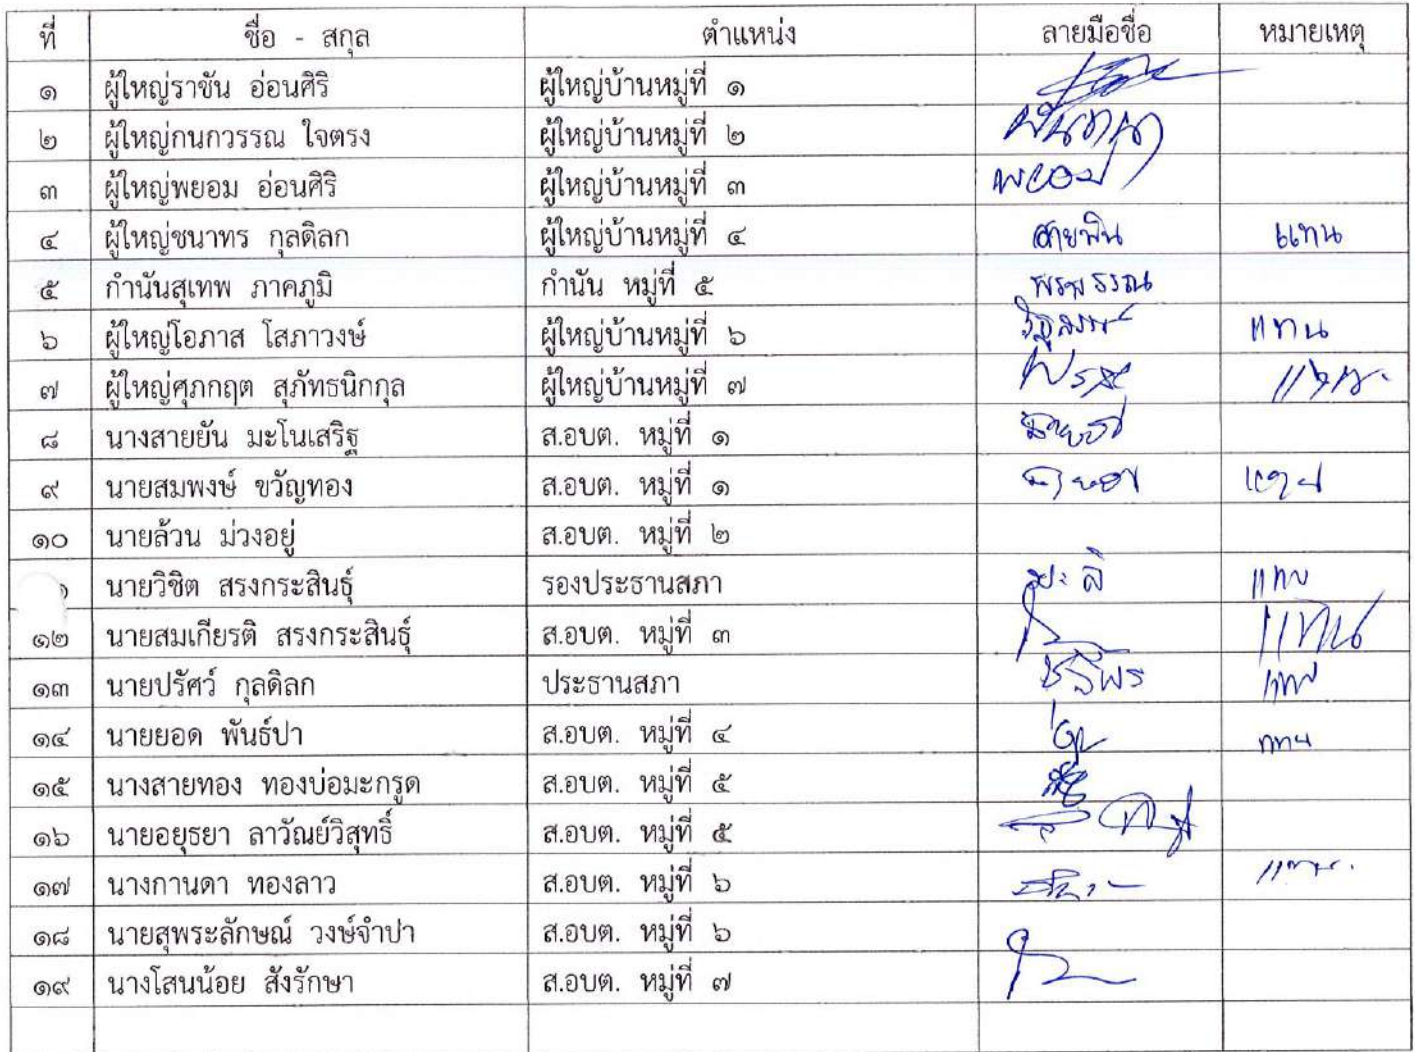 ที่ ชื่อ - สกุล ตำแหน่ง ลายมือชื่อ หมายเหตุ
๑ ผู้ใหญ่ราชัน อ่อนศิริ ผู้ใหญ่บ้านหมู่ที่ ๑
๒ ผู้ใหญ่กนกวรรณ ใจตรง ผู้ใหญ่บ้านหมู่ที่ ๒
๓ ผู้ใหญ่พยอม อ่อนศิริ ผู้ใหญ่บ้านหมู่ที่ ๓ พยอม
๔ ผู้ใหญ่ชนาทร กุลดิลก ผู้ใหญ่บ้านหมู่ที่ ๔ สายพิน แทน
๕ กำนันสุเทพ ภาคภูมิ กำนัน หมู่ที่ ๕
๖ ผู้ใหญ่โอภาส โสภาวงษ์ ผู้ใหญ่บ้านหมู่ที่ ๖ แทน
๗ ผู้ใหญ่ศุภกฤต สุภัทธนิกกุล ผู้ใหญ่บ้านหมู่ที่ ๗ แทน
๘ นางสายยัน มะโนเสริฐ ส.อบต. หมู่ที่ ๑
๙ นายสมพงษ์ ขวัญทอง ส.อบต. หมู่ที่ ๑
๑๐ นายล้วน ม่วงอยู่ ส.อบต. หมู่ที่ ๒
นายวิชิต สรงกระสินธุ์ รองประธานสภา แทน
๑๒ นายสมเกียรติ สรงกระสินธุ์ ส.อบต. หมู่ที่ ๓ แทน
๑๓ นายปรัศว์ กุลดิลก ประธานสภา แทน
๑๔ นายยอด พันธ์ปา ส.อบต. หมู่ที่ ๔ แทน
๑๕ นางสายทอง ทองบ่อมะกรูด ส.อบต. หมู่ที่ ๕
๑๖ นายอยุธยา ลาวัณย์วิสุทธิ์ ส.อบต. หมู่ที่ ๕
๑๗ นางกานดา ทองลาว ส.อบต. หมู่ที่ ๖ แทน
๑๘ นายสุพระลักษณ์ วงษ์จำปา ส.อบต. หมู่ที่ ๖
๑๙ นางโสนน้อย สังรักษา ส.อบต. หมู่ที่ ๗